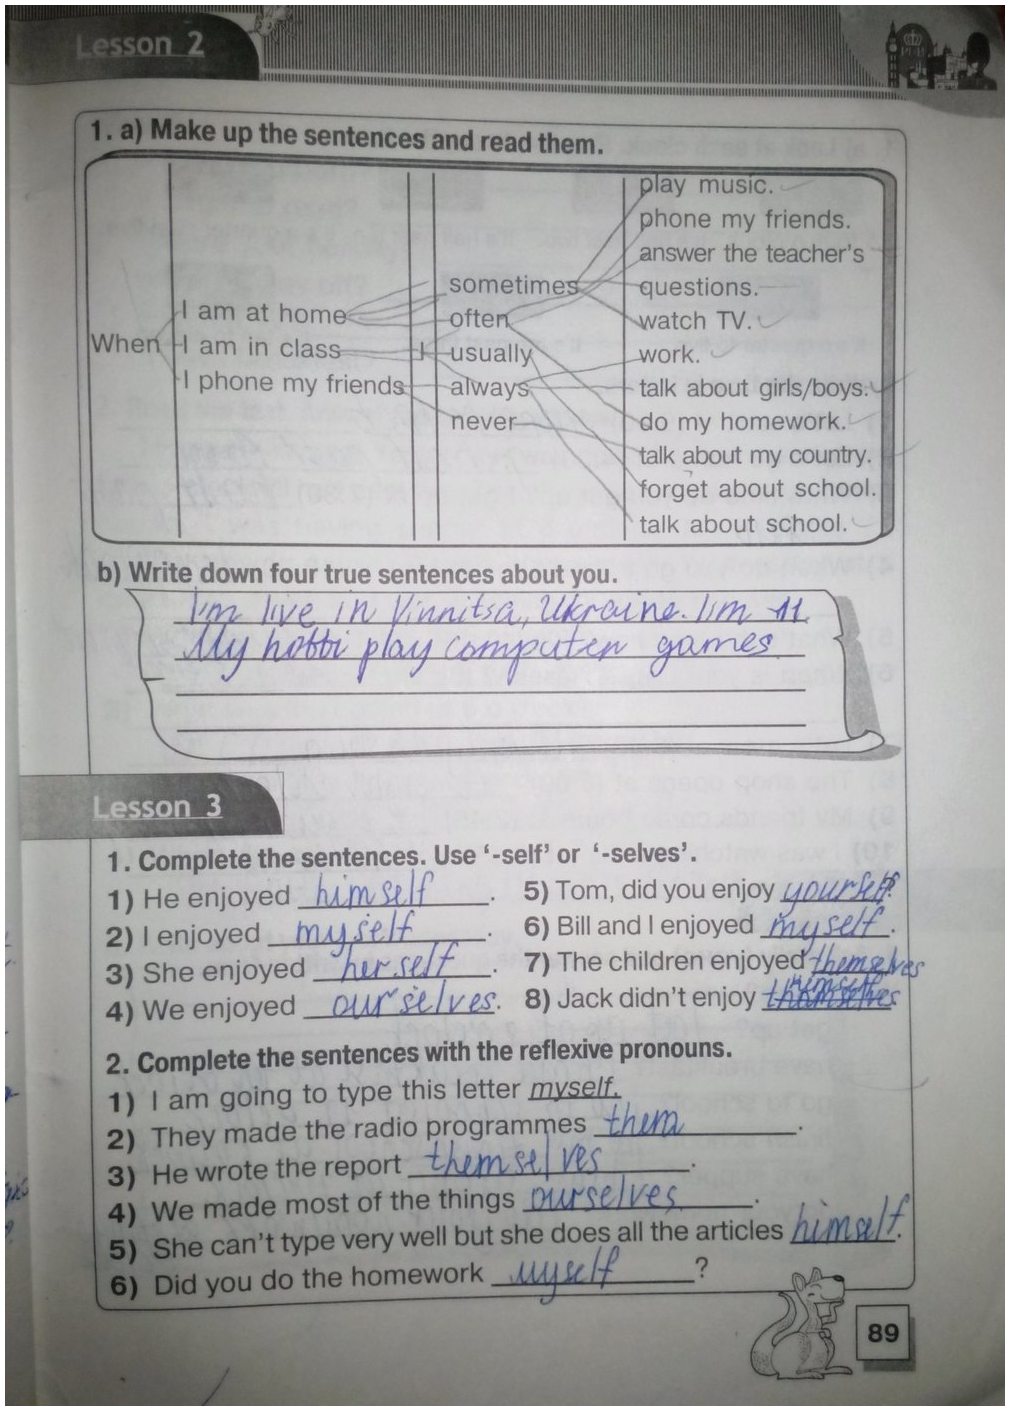 Lesson 2
1. a) Make up the sentences and read them.
play music.
phone my friends.
answer the teacher's
sometimes questions.
I am at home often watch TV.
When I am in class I usually work.
I phone my friends always talk about girls/boys.
never do my homework.
talk about my country.
forget about school.
talk about school.
b) Write down four true sentences about you.
I'm live in Vinnitsa, Ukraine. I'm 11.
My hobbi play computer games
Lesson 3
1. Complete the sentences. Use '-self' or '-selves'.
1) He enjoyed himself.
2) I enjoyed myself.
3) She enjoyed herself.
4) We enjoyed ourselves.
5) Tom, did you enjoy yourself?
6) Bill and I enjoyed myself.
7) The children enjoyed themselves
8) Jack didn't enjoy himself themselves
2. Complete the sentences with the reflexive pronouns.
1) I am going to type this letter myself.
2) They made the radio programmes them.
3) He wrote the report themselves.
4) We made most of the things ourselves.
5) She can't type very well but she does all the articles himself.
6) Did you do the homework myself?
89